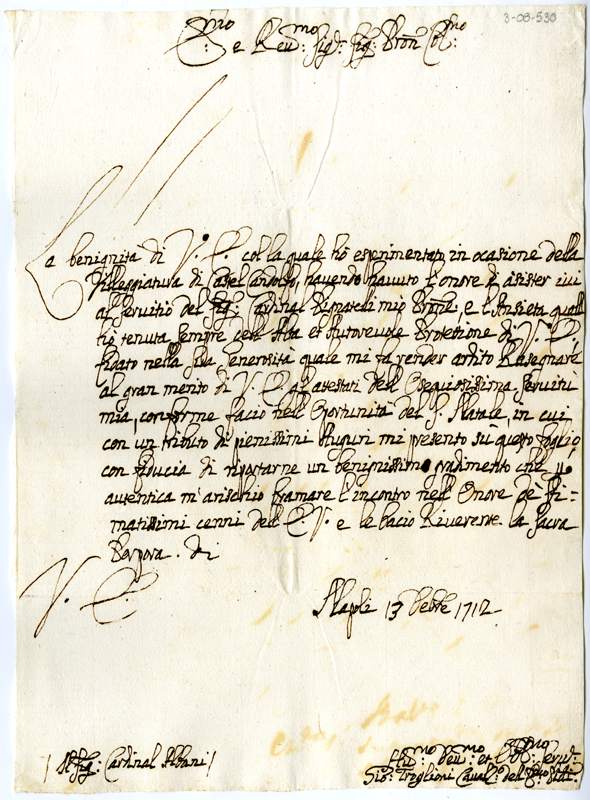 3-08-530
E.mo e Reu.mo Sig.r Sig. Pron Col.mo
La benignità di V. E. colla quale hò esperimentato in ocasione della
Villeggiatura di Castel Gandolfo, hauendo hauuto l'onore d'asister iui
al seruitio del Sig. Cardinal Pignatelli mio Prone, e l'Ansietà quale
hò tenuta sempre dell'Alta et Autoreuole Protetione di V. E.
fidato nella sua Generosità quale mi fà render ardito Rasegnare
al gran merito di V. E. gl'attestati dell'Osequiosissima seruitù
mia, conforme facio nell'Oportunità del S. Natale, in cui
con un tributo di pienissimi Auguri mi presento sù questo foglio
con fiducia di riportarne un benignissimo gradimento che
autentica m'arischio bramare l'incontro nell'Onore de sti=
matissimi cenni dell'E. V. e le bacio Riuerente la sacra
Porpora. di
V. E.
Napoli 13 Xbre 1712
Al Sig. Cardinal Albani
Hu.mo Deu.mo et Obb.mo seru.r
Gio: Troglioni Caual.o del